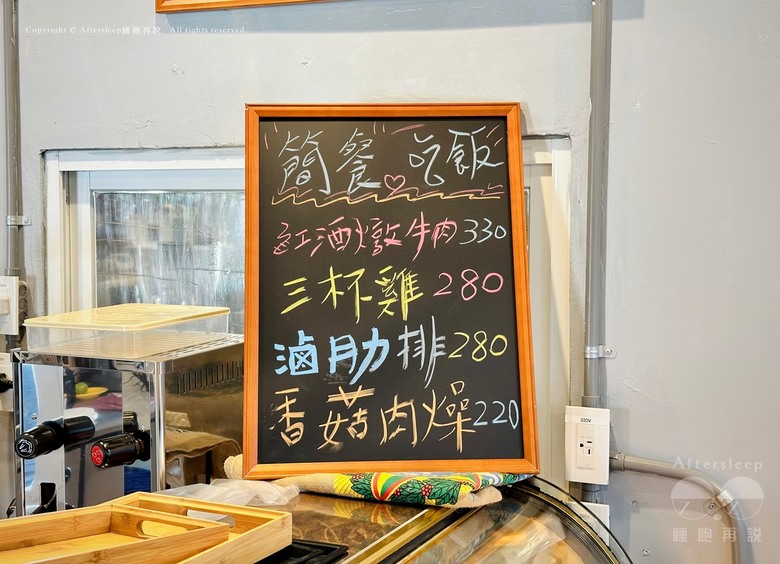 Copyright © Aftersleep睡飽再說 All rights reserved.
簡餐 吃飯
紅酒燉牛肉330
三杯雞280
滷肋排280
香菇肉燥220
220V
Aftersleep
睡飽再說